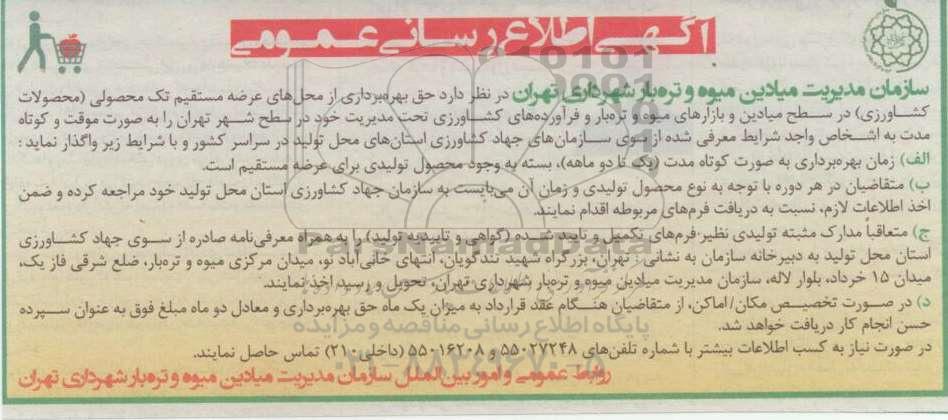 آگهی اطلاع رسانی عمومی
سازمان مدیریت میادین میوه و تره‌بار شهرداری تهران در نظر دارد حق بهره‌برداری از محل‌های عرضه مستقیم تک محصولی (محصولات
کشاورزی) در سطح میادین و بازارهای میوه و تره‌بار و فرآورده‌های کشاورزی تحت مدیریت خود در سطح شهر تهران را به صورت موقت و کوتاه
مدت به اشخاص واجد شرایط معرفی شده از سوی سازمان‌های جهاد کشاورزی استان‌های محل تولید در سراسر کشور و با شرایط زیر واگذار نماید :
الف) زمان بهره‌برداری به صورت کوتاه مدت (یک تا دو ماهه)، بسته به وجود محصول تولیدی برای عرضه مستقیم است.
ب) متقاضیان در هر دوره با توجه به نوع محصول تولیدی و زمان آن می‌بایست به سازمان جهاد کشاورزی استان محل تولید خود مراجعه کرده و ضمن
اخذ اطلاعات لازم، نسبت به دریافت فرم‌های مربوطه اقدام نمایند.
ج) متعاقباً مدارک مثبته تولیدی نظیر فرم‌های تکمیل و تایید شده (گواهی و تاییدیه تولید) را به همراه معرفی‌نامه صادره از سوی جهاد کشاورزی
استان محل تولید به دبیرخانه سازمان به نشانی : تهران، بزرگراه شهید تندگویان، انتهای خانی‌آباد نو، میدان مرکزی میوه و تره‌بار، ضلع شرقی فاز یک،
میدان ۱۵ خرداد، بلوار لاله، سازمان مدیریت میادین میوه و تره‌بار شهرداری تهران، تحویل و رسید اخذ نمایند.
د) در صورت تخصیص مکان/اماکن، از متقاضیان هنگام عقد قرارداد به میزان یک ماه حق بهره‌برداری و معادل دو ماه مبلغ فوق به عنوان سپرده
حسن انجام کار دریافت خواهد شد.
در صورت نیاز به کسب اطلاعات بیشتر با شماره تلفن‌های ۵۵۰۲۷۲۴۸ و ۵۵۰۱۶۲۰۸ (داخلی ۲۱۰) تماس حاصل نمایند.
روابط عمومی و امور بین‌الملل سازمان مدیریت میادین میوه و تره‌بار شهرداری تهران
ParsNamadData
پایگاه اطلاع رسانی مناقصه و مزایده